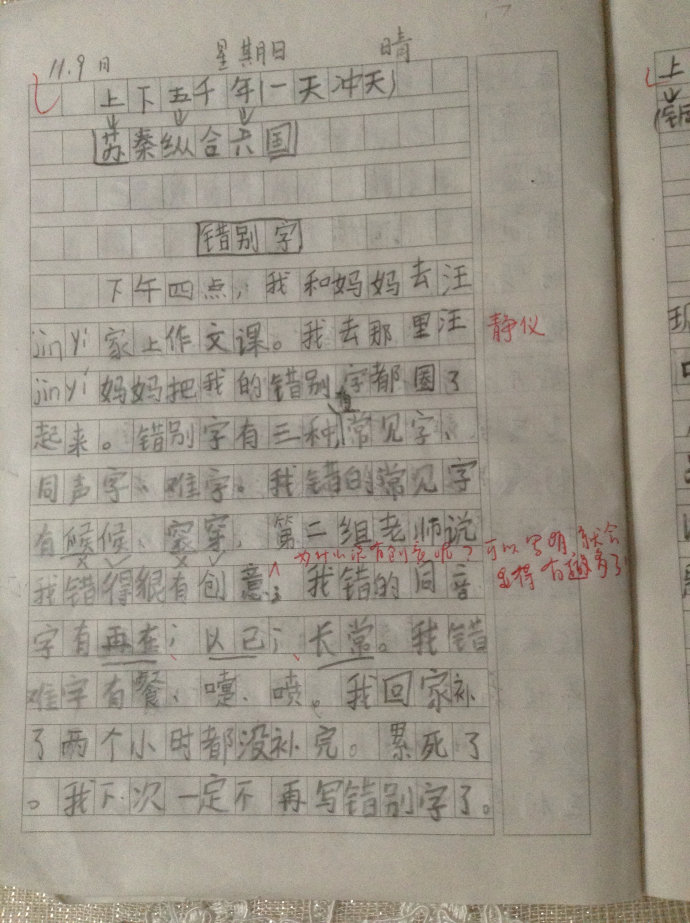 11.9日 星期日 晴
上下五千年(一天冲天)
苏秦纵合六国
错别字
下午四点，我和妈妈去汪
jinyi家上作文课。我去那里汪
静仪
jinyí妈妈把我的错别字都圈了
起来。错别字有三种，常见字、
同声字、难字。我错的常见字
有候候、家穿，第二组老师说
为什么没有创意呢？可以写明，就会
显得有趣多了
我错得很有创意。我错的同音
字有再在；以已；长常。我错
难字有餐、嚏、喷。我回家补
了两个小时都没补完。累死了
。我下次一定不再写错别字了。
上